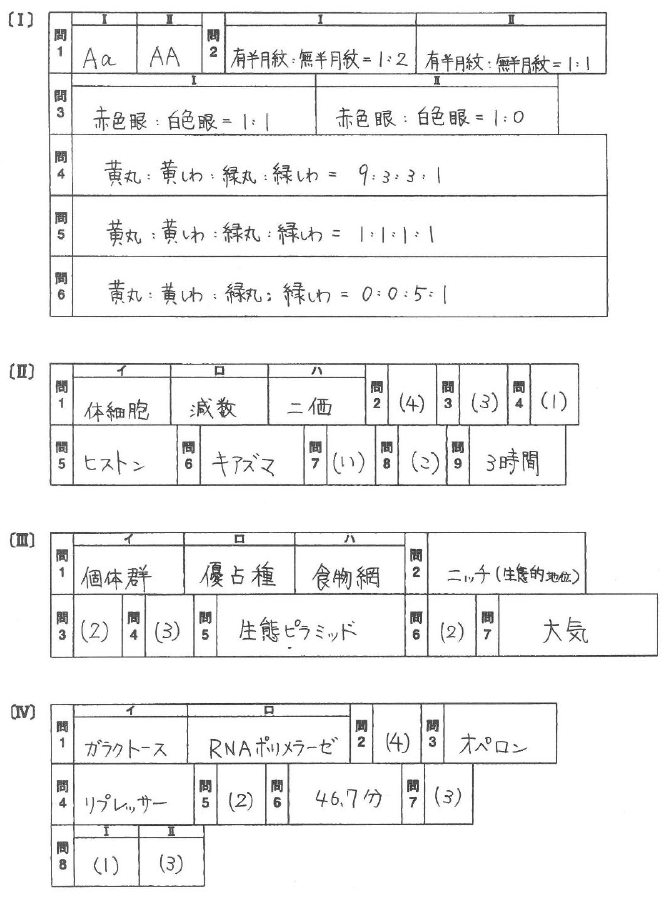 〔Ⅰ〕 問1 Ⅰ Aa Ⅱ AA 問2 Ⅰ 有半月紋:無半月紋=1:2 Ⅱ 有半月紋:無半月紋=1:1
問3 Ⅰ 赤色眼:白色眼=1:1 Ⅱ 赤色眼:白色眼=1:0
問4 黄丸:黄しわ:緑丸:緑しわ= 9:3:3:1
問5 黄丸:黄しわ:緑丸:緑しわ= 1:1:1:1
問6 黄丸:黄しわ:緑丸:緑しわ= 0:0:5:1
〔Ⅱ〕 問1 イ 体細胞 ロ 減数 ハ 二価 問2 (4) 問3 (3) 問4 (1)
問5 ヒストン 問6 キアズマ 問7 (い) 問8 (こ) 問9 3時間
〔Ⅲ〕 問1 イ 個体群 ロ 優占種 ハ 食物網 問2 ニッチ(生態的地位)
問3 (2) 問4 (3) 問5 生態ピラミッド 問6 (2) 問7 大気
〔Ⅳ〕 問1 イ ガラクトース ロ RNAポリメラーゼ 問2 (4) 問3 オペロン
問4 リプレッサー 問5 (2) 問6 46.7分 問7 (3)
問8 Ⅰ (1) Ⅱ (3)